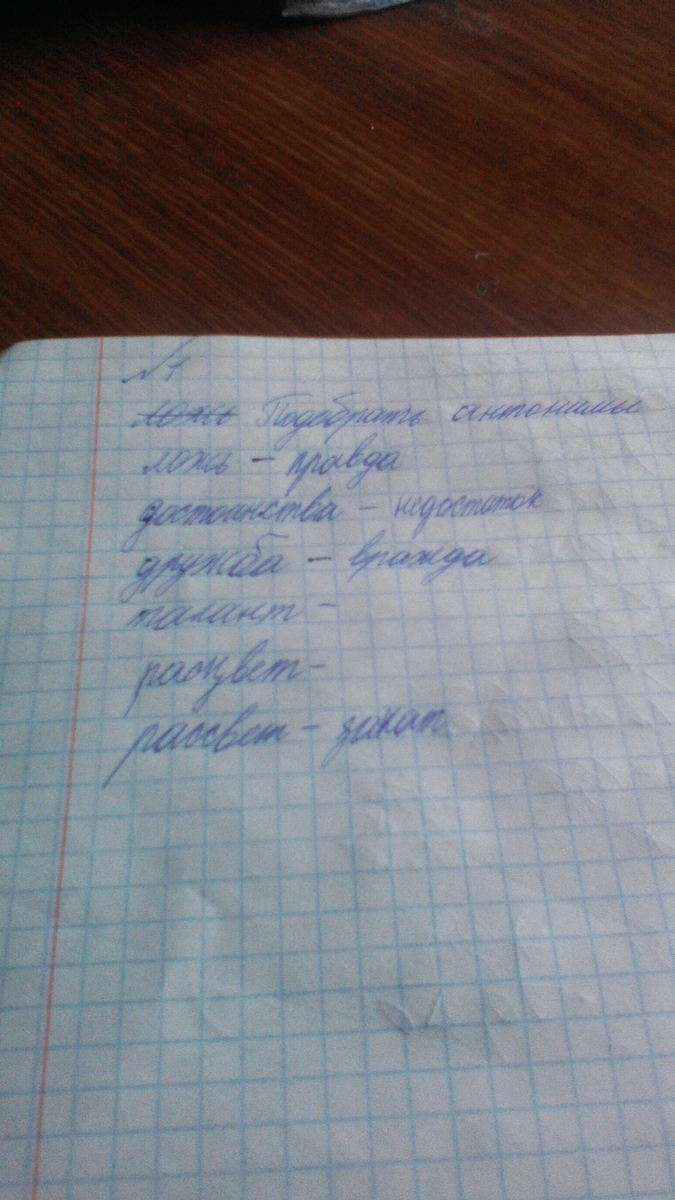 №1
ложь Подобрать антонимы
ложь – правда
достоинства – недостаток
дружба – вражда
талант –
расцвет –
рассвет – закат